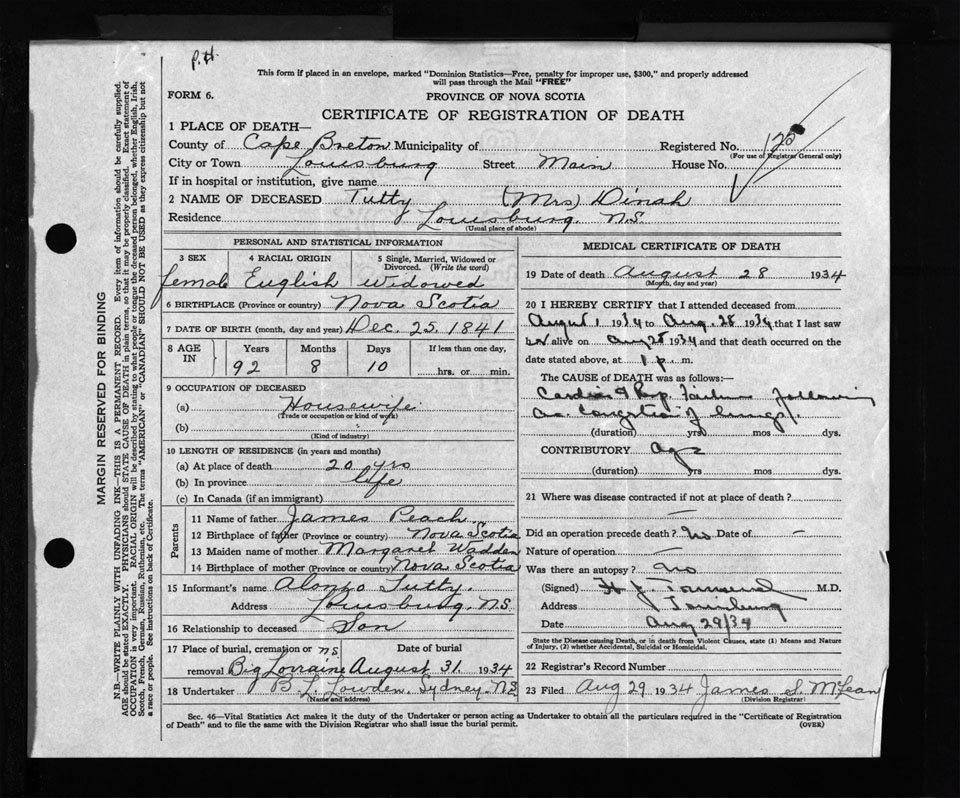 P.H.
This form if placed in an envelope, marked "Dominion Statistics—Free, penalty for improper use, $300," and properly addressed
will pass through the Mail "FREE"
FORM 6.
PROVINCE OF NOVA SCOTIA
CERTIFICATE OF REGISTRATION OF DEATH
1 PLACE OF DEATH—
County of Cape Breton Municipality of Registered No. 120
(For use of Registrar General only)
City or Town Louisburg Street Main House No.
If in hospital or institution, give name
2 NAME OF DECEASED Tutty (Mrs) Dinah
Residence Louisburg. N.S.
(Usual place of abode)
PERSONAL AND STATISTICAL INFORMATION
3 SEX 4 RACIAL ORIGIN 5 Single, Married, Widowed or
Divorced. (Write the word)
female English Widowed
6 BIRTHPLACE (Province or country) Nova Scotia
7 DATE OF BIRTH (month, day and year) Dec. 25. 1841
8 AGE IN Years Months Days If less than one day,
92 8 10 hrs. or min.
9 OCCUPATION OF DECEASED
(a) Housewife
(Trade or occupation or kind of work)
(b)
(Kind of industry)
10 LENGTH OF RESIDENCE (in years and months)
(a) At place of death 20 yrs
(b) In province life
(c) In Canada (if an immigrant)
Parents
11 Name of father James Peach.
12 Birthplace of father (Province or country) Nova Scotia
13 Maiden name of mother Margaret Wadden
14 Birthplace of mother (Province or country) Nova Scotia
15 Informant's name Alonzo Tutty.
Address Louisburg. N.S.
16 Relationship to deceased Son
17 Place of burial, cremation or N.S. Date of burial
removal Big Lorraine August 31. 1934
18 Undertaker B. L. Lowden. Sydney. N.S.
(Name and address)
MEDICAL CERTIFICATE OF DEATH
19 Date of death August 28 1934
(Month, day and year)
20 I HEREBY CERTIFY that I attended deceased from
August 1 1934 to Aug. 28 1934 that I last saw
her alive on Aug 28 1934 and that death occurred on the
date stated above, at 1 p. m.
The CAUSE of DEATH was as follows:—
Cardiac & Resp. Failure following
on Congestion of lungs
(duration) yrs mos dys.
CONTRIBUTORY Age
(duration) yrs mos dys.
21 Where was disease contracted if not at place of death?
—
Did an operation precede death? No Date of —
Nature of operation —
Was there an autopsy? No
(Signed) H. J. Townsend M.D.
Address Louisburg
Date Aug 29/34
State the Disease causing Death, or in death from Violent Causes, state (1) Means and Nature
of Injury, (2) whether Accidental, Suicidal or Homicidal.
22 Registrar's Record Number
23 Filed Aug 29 1934 James S. McLean
(Division Registrar)
Sec. 46—Vital Statistics Act makes it the duty of the Undertaker or person acting as Undertaker to obtain all the particulars required in the "Certificate of Registration
of Death" and to file the same with the Division Registrar who shall issue the burial permit.
(OVER)
MARGIN RESERVED FOR BINDING
N.B.—WRITE PLAINLY WITH UNFADING INK—THIS IS A PERMANENT RECORD. Every item of information should be carefully supplied.
AGE should be stated EXACTLY. PHYSICIANS should STATE CAUSE OF DEATH in plain terms, so that it may be properly classified. Exact statement of
OCCUPATION is very important. RACIAL ORIGIN will be described by stating to what people or tongue the deceased person belonged, whether English, Irish,
Scotch, French, German, Russian, Ruthenian, etc. The terms "AMERICAN" or "CANADIAN" SHOULD NOT BE USED as they express citizenship but not
a race or people. See instructions on back of Certificate.